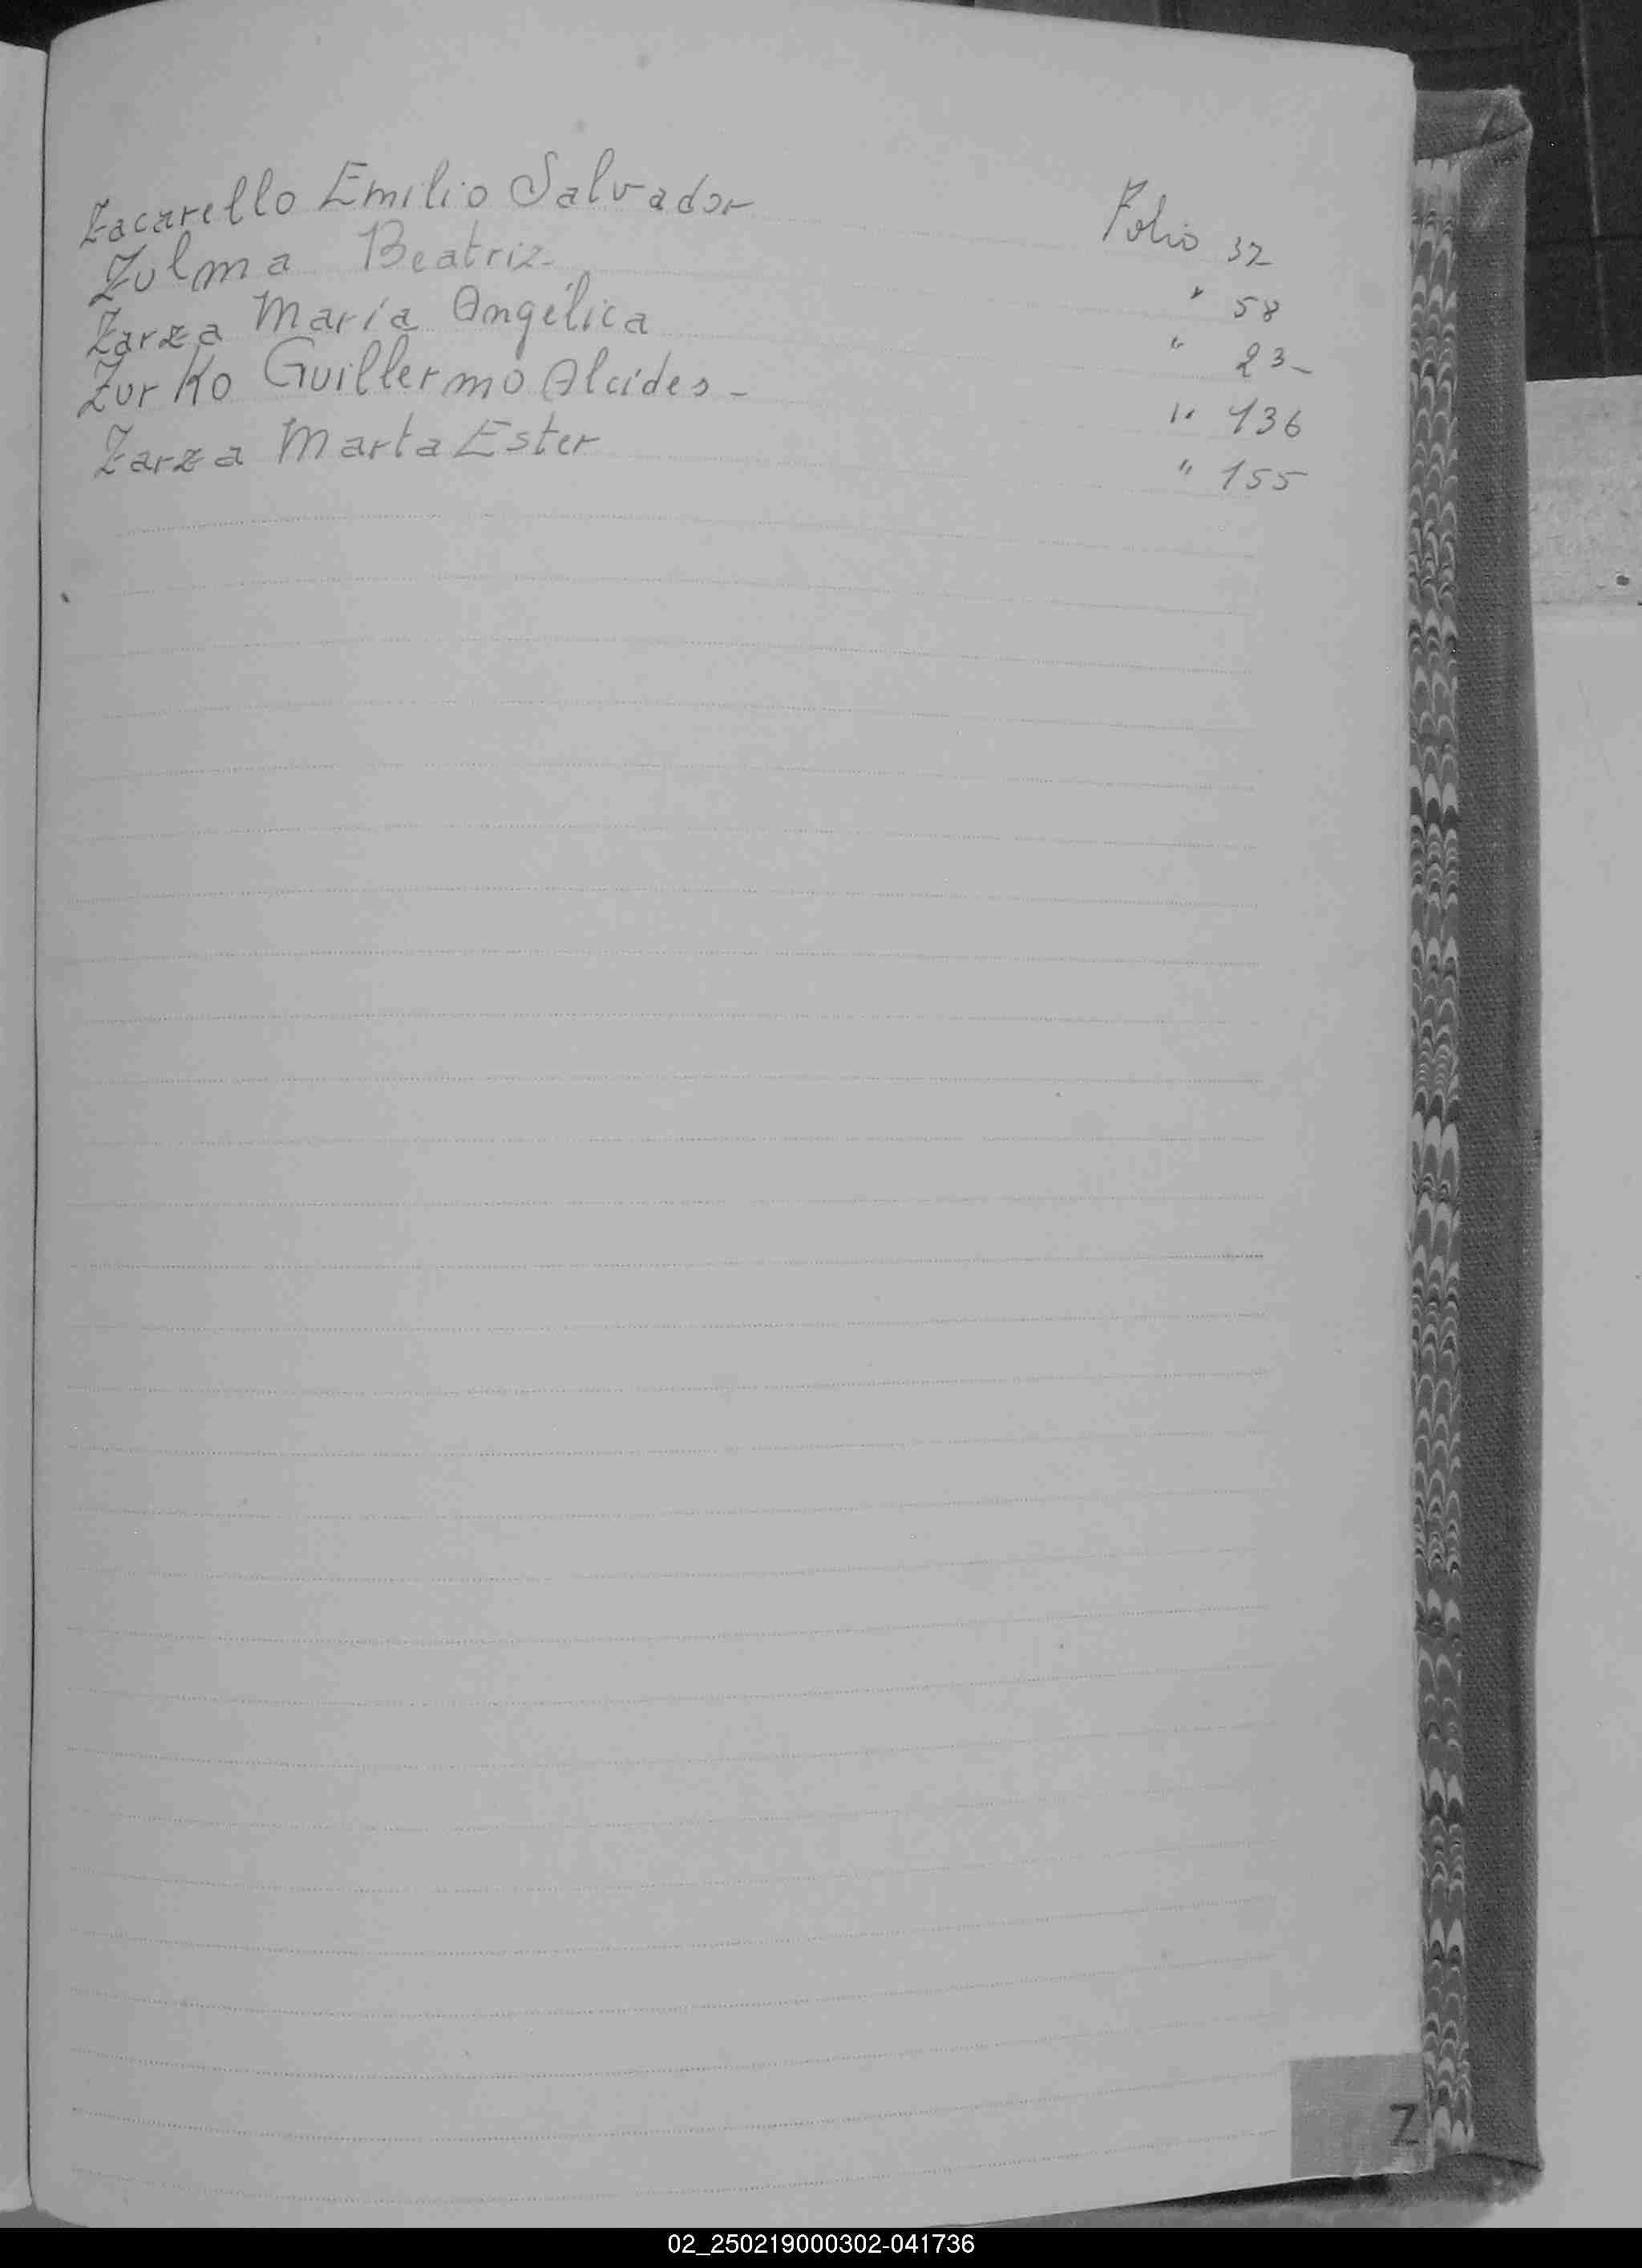 Zacarello Emilio Salvador Folio 32
Zulma Beatriz- " 58
Zarza María Angélica " 23-
Zurko Guillermo Alcides- " 136
Zarza Marta Ester " 155
Z
02_250219000302-041736